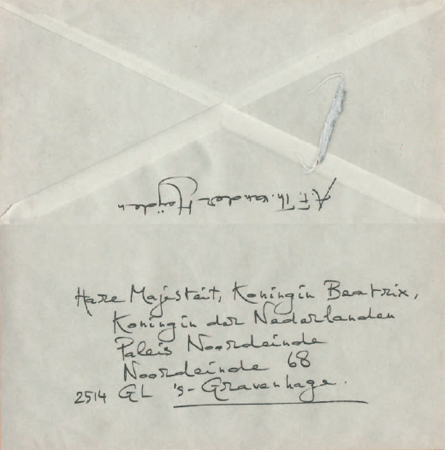 A.F.Th. van der Heijden
Hare Majesteit, Koningin Beatrix,
Koningin der Nederlanden
Paleis Noordeinde
Noordeinde 68
2514 GL 's-Gravenhage.